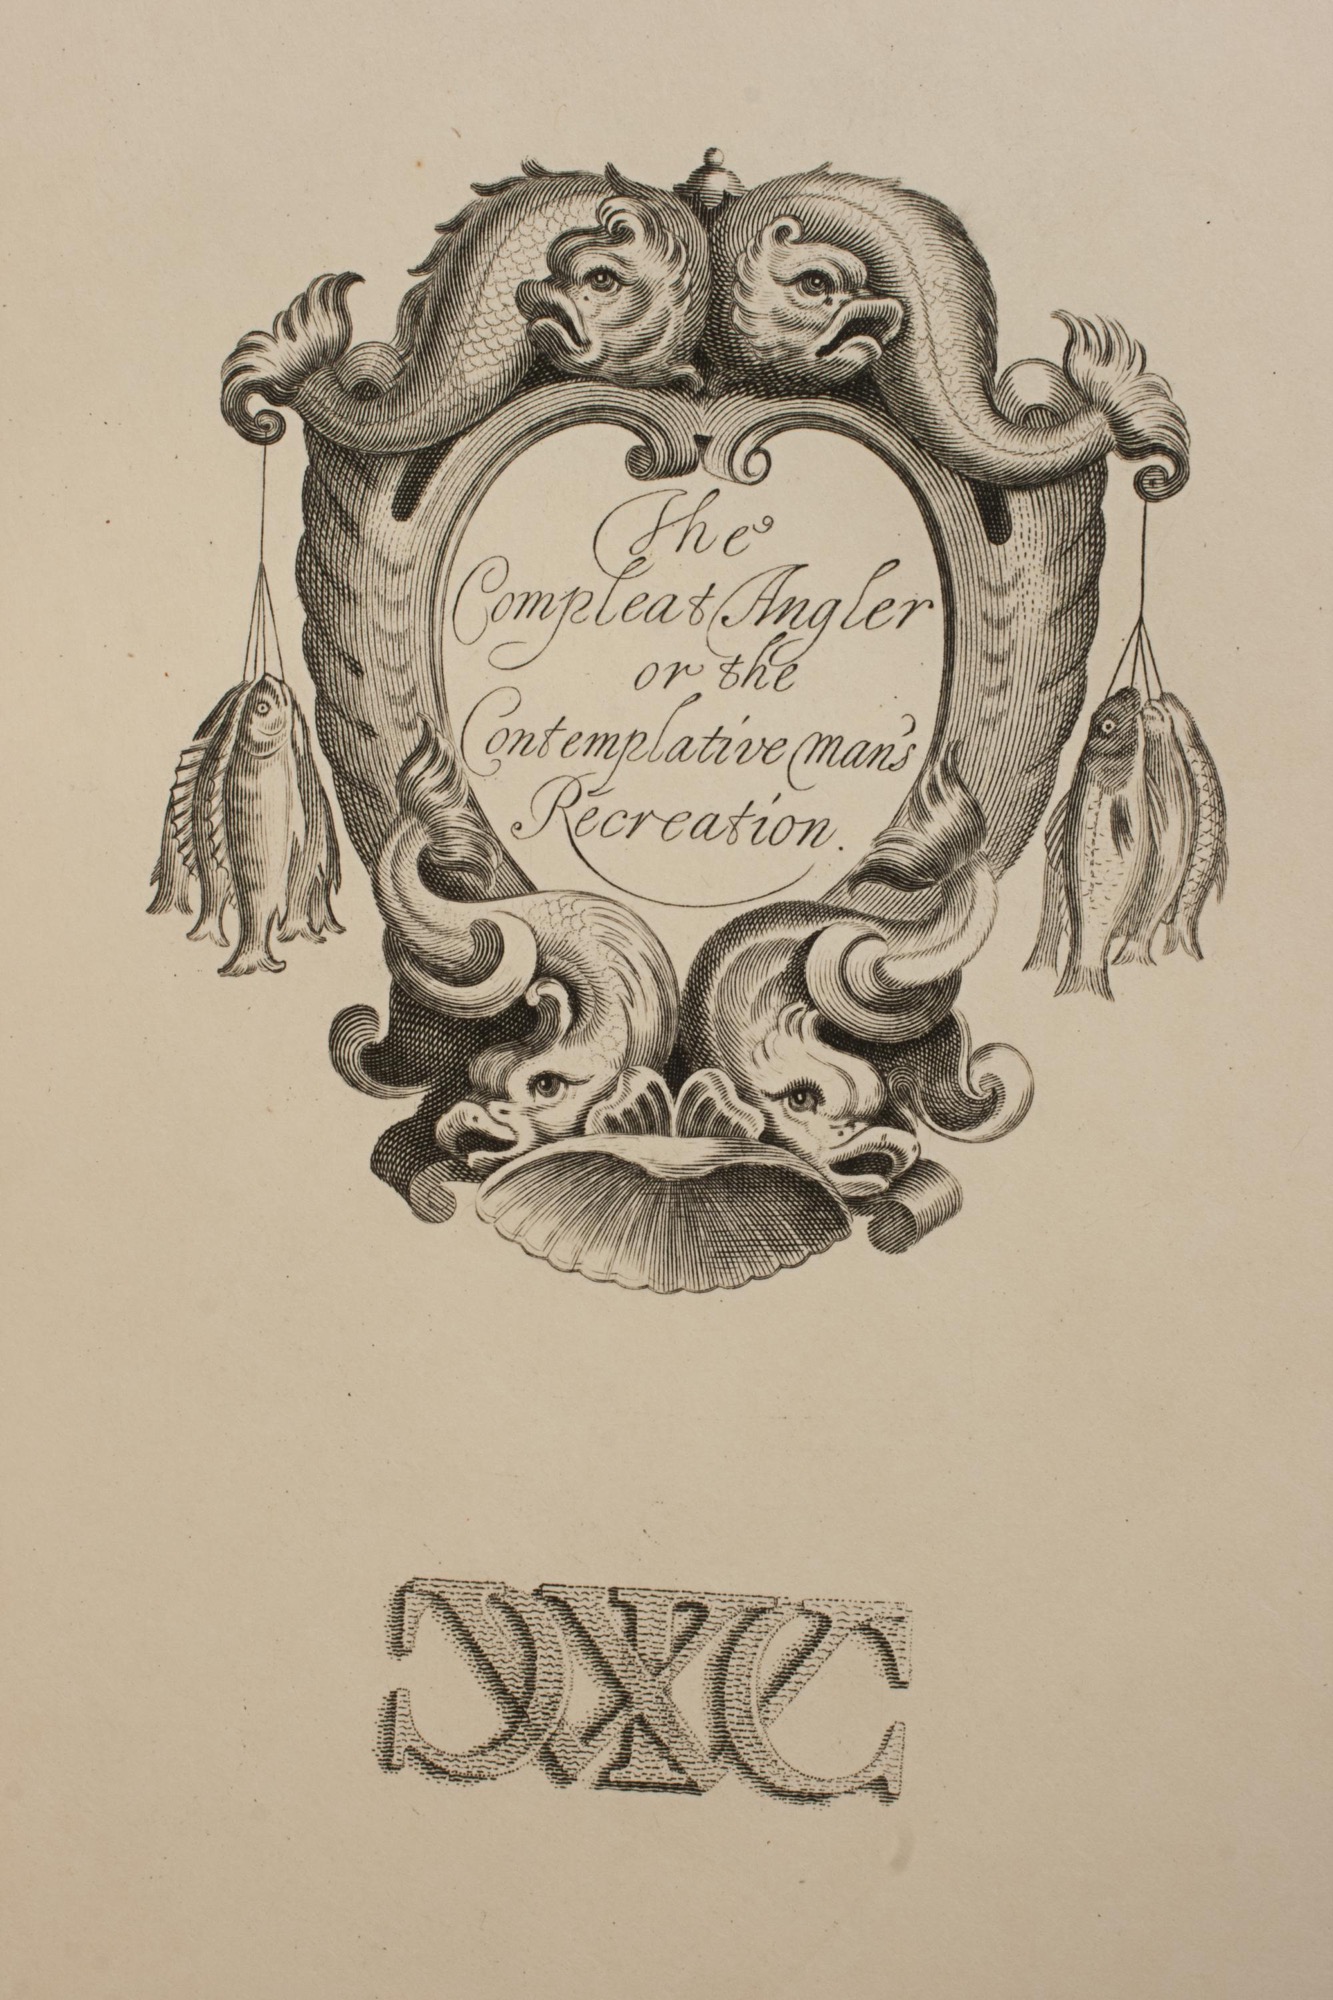 The
Compleat Angler
or the
Contemplative man's
Recreation.